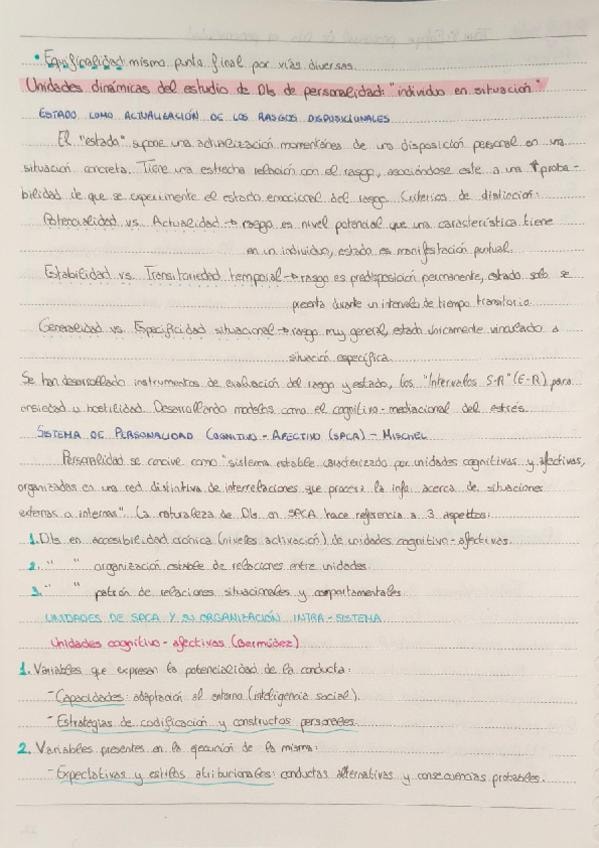 • Equifinalidad: mismo punto final por vías diversas.
Unidades dinámicas del estudio de DIs de personalidad: "individuo en situación"
ESTADO COMO ACTUALIZACIÓN DE LOS RASGOS DISPOSICIONALES
El "estado" supone una actualización momentánea de una disposición personal en una
situación concreta. Tiene una estrecha relación con el rasgo, asociándose este a una ↑ proba-
bilidad de que se experimente el estado emocional del rasgo. Criterios de distinción:
Potencialidad vs. Actualidad → rasgo es nivel potencial que una característica tiene
en un individuo, estado es manifestación puntual.
Estabilidad vs. Transitoriedad temporal → rasgo es predisposición permanente, estado solo se
presenta durante un intervalo de tiempo transitorio.
Generalidad vs. Especificidad situacional → rasgo muy general, estado únicamente vinculado a
situación específica.
Se han desarrollado instrumentos de evaluación del rasgo y estado, los "Intervalos S-R" (E-R) para
ansiedad u hostilidad. Desarrollando modelos como el cognitivo-mediacional del estrés.
SISTEMA DE PERSONALIDAD COGNITIVO-AFECTIVO (SPCA) - MISCHEL
Personalidad se concive como "sistema estable caracterizado por unidades cognitivas y afectivas,
organizadas en una red distintiva de interrelaciones que procesa la info. acerca de situaciones
externas o internas". La naturaleza de DIs en SPCA hace referencia a 3 aspectos:
1. DIs en accesibilidad crónica (niveles activación) de unidades cognitivo-afectivas.
2. " " organización estable de relaciones entre unidades.
3. " " patrón de relaciones situacionales y comportamentales.
UNIDADES DE SPCA Y SU ORGANIZACIÓN INTRA-SISTEMA
Unidades cognitivo-afectivas (Bermúdez)
1. Variables que expresan la potencialidad de la conducta:
- Capacidades: adaptación al entorno (inteligencia social).
- Estrategias de codificación y constructos personales.
2. Variables presentes en la ejecución de la misma:
- Expectativas y estilos atribucionales: conductas alternativas y consecuencias probables.